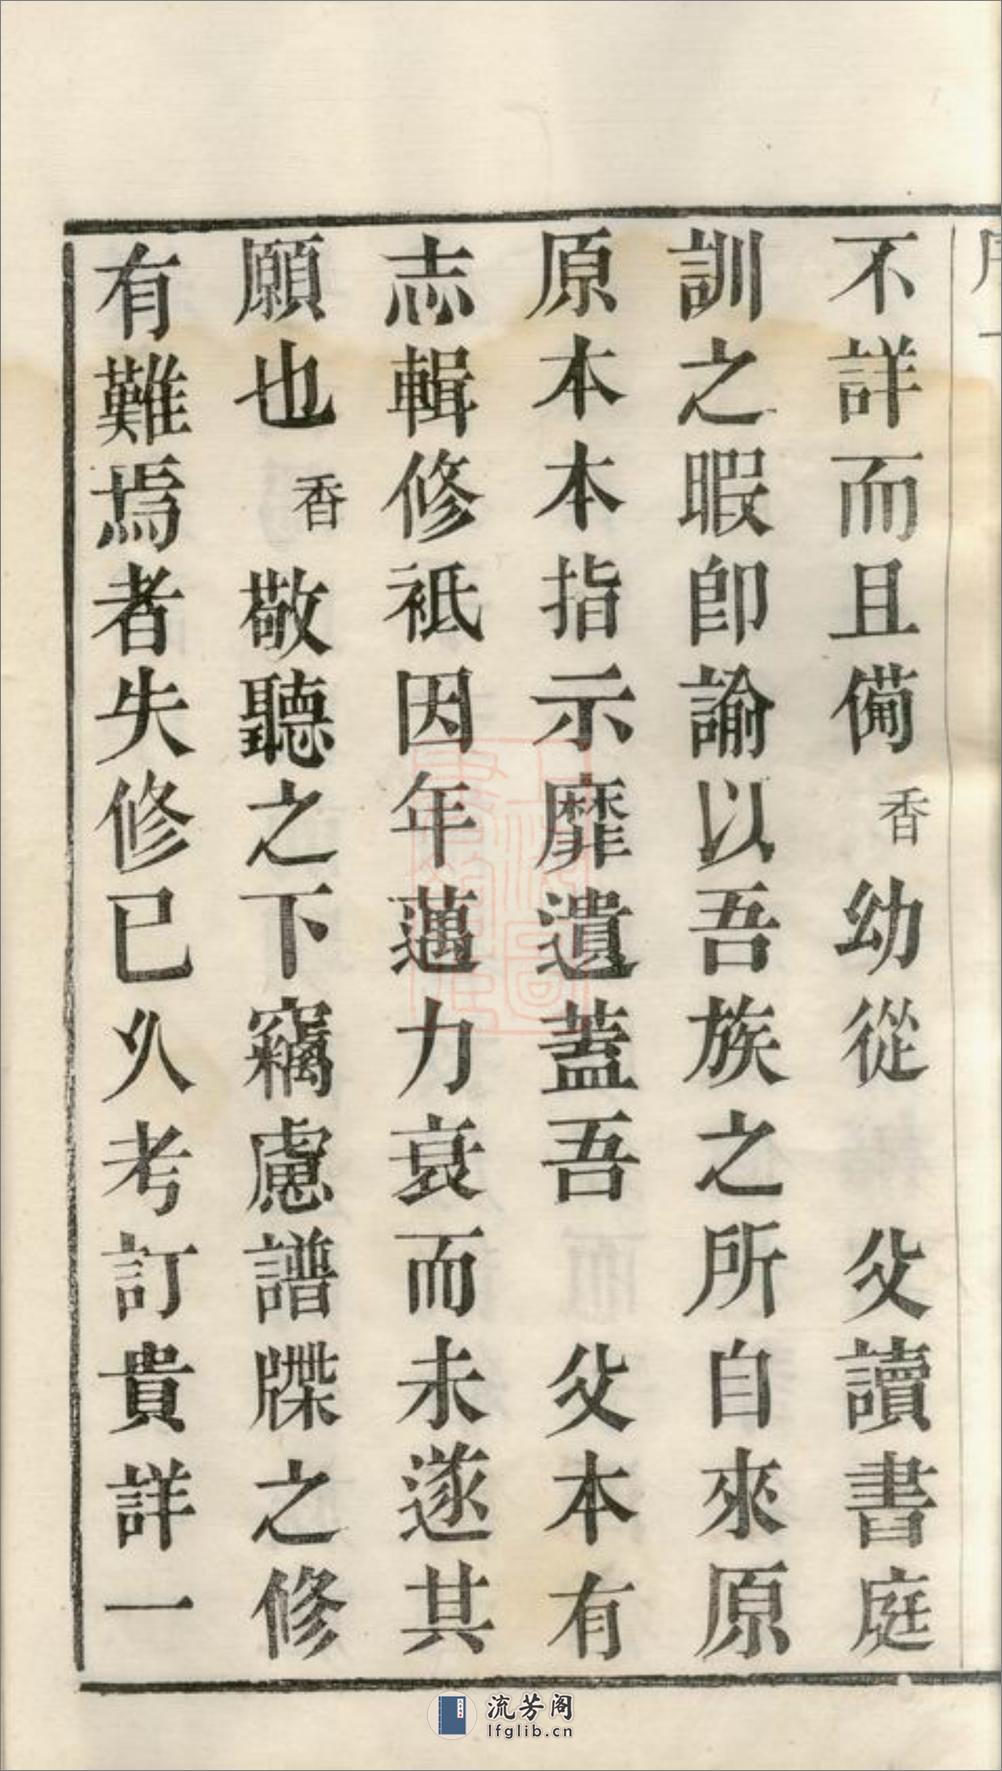 不詳而且僃香幼從 父讀書庭
訓之暇卽諭以吾族之所自來原
原本本指示靡遺蓋吾 父本有
志輯修祇因年邁力衰而未遂其
願也香敬聽之下竊慮譜牒之修
有難焉者失修已久考訂貴詳一
流芳阁
lfglib.cn